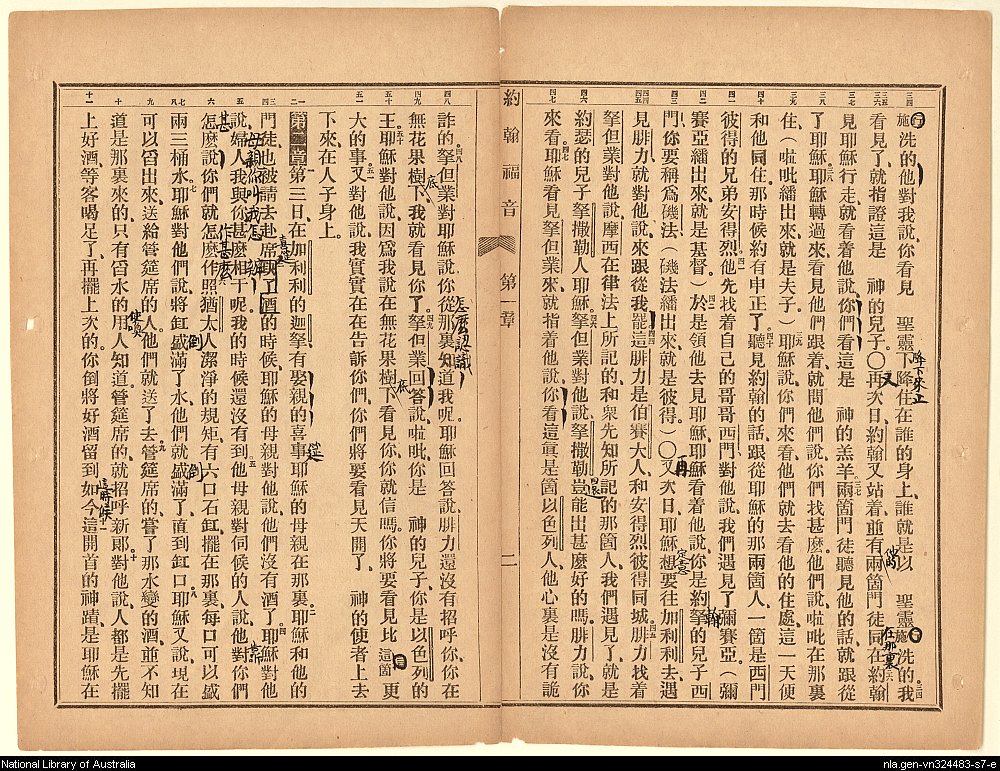 施洗的他對我說你看見　聖靈下降住在誰的身上誰就是以　聖靈施洗的我
看見了就指證這是　神的兒子〇再次日約翰又站着並有兩箇門徒同在約翰
見耶穌行走就看着他說你們看這是　神的羔羊兩箇門徒聽見他的話就跟從
了耶穌耶穌轉過來看見他們跟着就問他們說你們找甚麼他們說啦吡在那裏
住（啦吡繙出來就是夫子）耶穌說你們來看他們就去看他的住處這一天便
和他同住那時候約有申正了聽見約翰的話跟從耶穌的那兩箇人一箇是西門
彼得的兄弟安得烈他先找着自己的哥哥西門對他說我們遇見了彌賽亞（彌
賽亞繙出來就是基督）於是領他去見耶穌耶穌看着他說你是約拏的兒子西
門你要稱爲磯法（磯法繙出來就是彼得）〇又次日耶穌想要往加利利去遇
見腓力就對他說來跟從我罷這腓力是伯賽大人和安得烈彼得同城腓力找着
拏但業對他說摩西在律法上所記的和衆先知所記的那箇人我們遇見了就是
約瑟的兒子拏撒勒人耶穌拏但業對他說拏撒勒豈能出甚麼好的嗎腓力說你
來看耶穌看見拏但業來就指着他說你看這眞是箇以色列人他心裏是沒有詭
約翰福音　第一章　二
詐的拏但業對耶穌說你從那裏知道我呢耶穌回答說腓力還沒有招呼你你在
無花果樹下我就看見你了拏但業回答說啦吡你是　神的兒子你是以色列的
王耶穌對他說因爲我說在無花果樹下看見你你就信嗎你將要看見比這箇更
大的事又對他說我實實在在告訴你們你們將要看見天開了　神的使者上去
下來在人子身上
第二章第三日在加利利的迦拏有娶親的喜事耶穌的母親在那裏耶穌和他的
門徒也被請去赴席酒的時候耶穌的母親對他說他們沒有酒了耶穌對他
說婦人我與你甚麼相干呢我的時候還沒有到他母親對伺候的人說他對你們
怎麼說你們就怎麼作照猶太人潔淨的規矩有六口石缸擺在那裏每口可以盛
兩三桶水耶穌對他們說將缸盛滿了水他們就盛滿了直到缸口耶穌又說現在
可以舀出來送給管筵席的人他們就送了去管筵席的嘗了那水變的酒並不知
道是那裏來的只有舀水的用人知道管筵席的就招呼新郞對他說人都是先擺
上好酒等客喝足了再擺上次的你倒將好酒留到如今這開首的神蹟是耶穌在
National Library of Australia
nla.gen-vn324483-s7-e